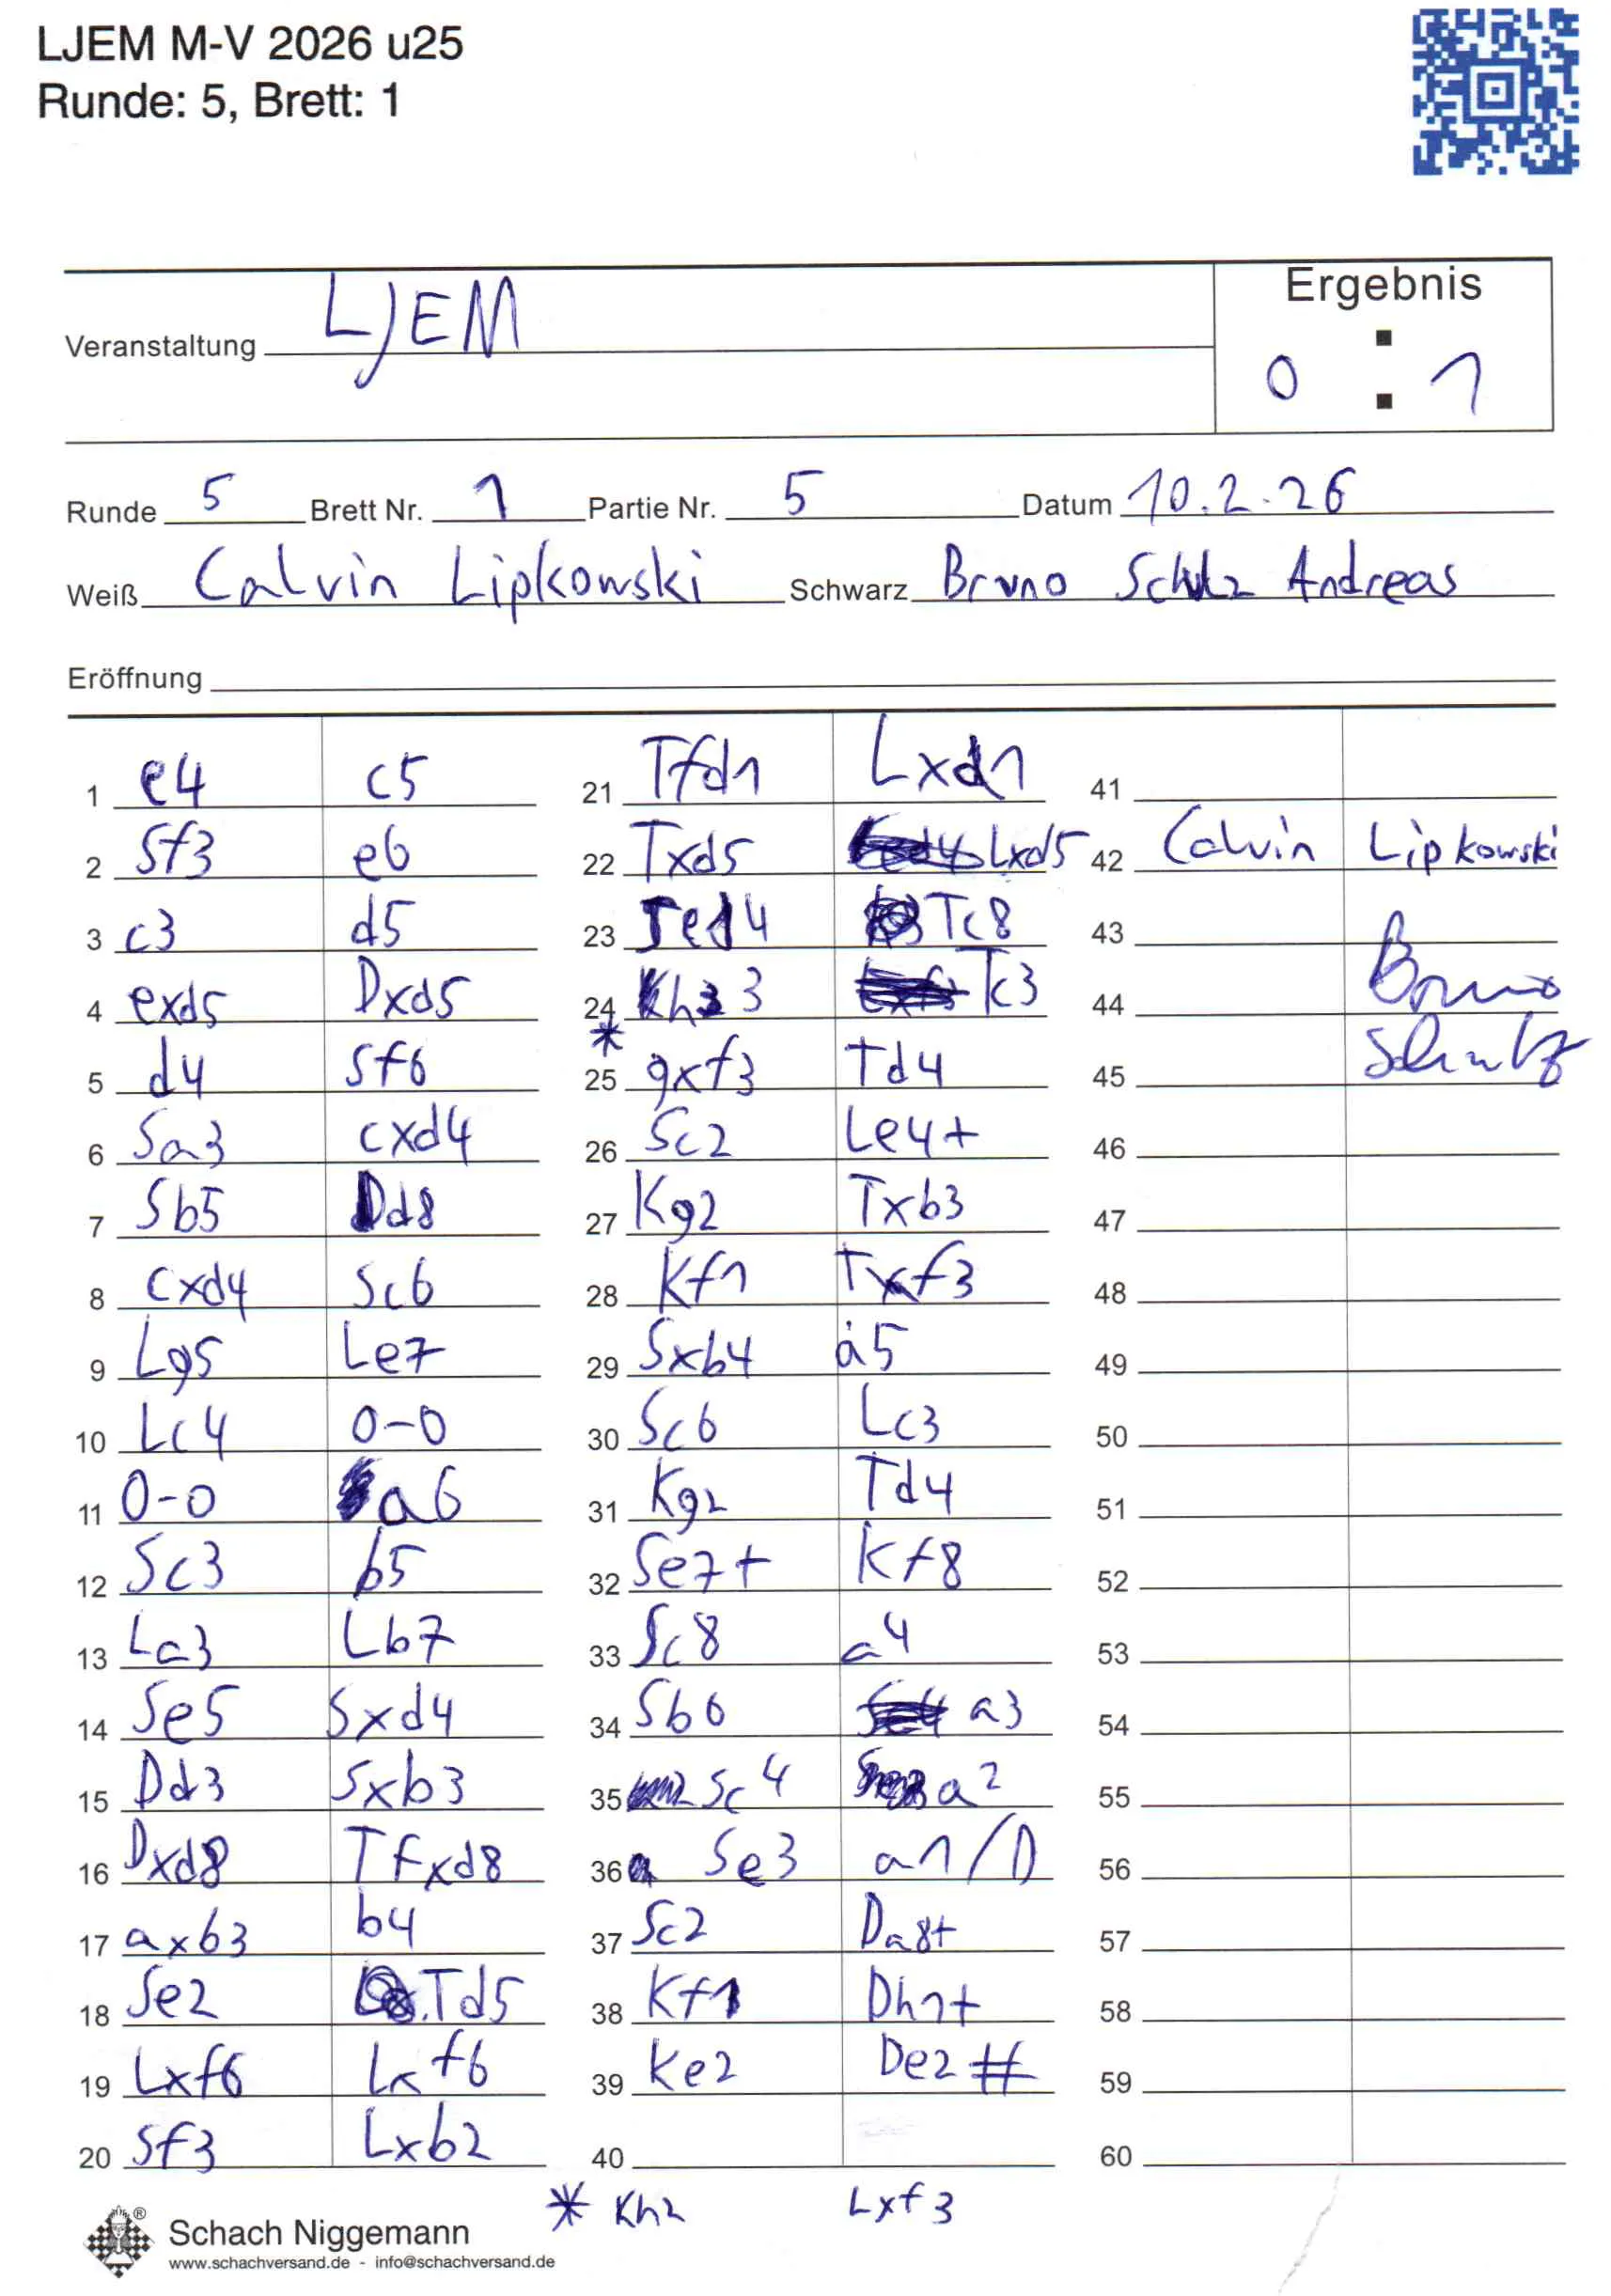 LJEM M-V 2026 u25
Runde: 5, Brett: 1
Ergebnis
Veranstaltung LJEM
0 : 1
Runde 5 Brett Nr. 1 Partie Nr. 5 Datum 10.2.26
Weiß Calvin Lipkowski Schwarz Bruno Schulz Andreas
Eröffnung
1 e4 c5
2 Sf3 e6
3 c3 d5
4 exd5 Dxd5
5 d4 Sf6
6 Sa3 cxd4
7 Sb5 Dd8
8 cxd4 Sc6
9 Lg5 Le7
10 Lc4 0-0
11 0-0 a6
12 Sc3 b5
13 La3 Lb7
14 Se5 Sxd4
15 Dd3 Sxb3
16 Dxd8 Tfxd8
17 axb3 b4
18 Se2 Td5
19 Lxf6 Lxf6
20 Sf3 Lxb2
21 Tfd1 Lxd1
22 Txd5 Lxd5
23 Sed4 Tc8
24 Kh3 3 Tc3
*
25 gxf3 Td4
26 Sc2 Le4+
27 Kg2 Txb3
28 Kf1 Txf3
29 Sxb4 a5
30 Sc6 Lc3
31 Kg2 Td4
32 Se7+ Kf8
33 Sc8 a4
34 Sb6 a3
35 Sc4 a2
36 Se3 a1/D
37 Sc2 Da8+
38 Kf1 Dh1+
39 Ke2 De2#
40
41
42 Calvin Lipkowski
43
44 Bruno
45 Schulz
46
47
48
49
50
51
52
53
54
55
56
57
58
59
60
* Kh2 Lxf3
Schach Niggemann
www.schachversand.de - info@schachversand.de